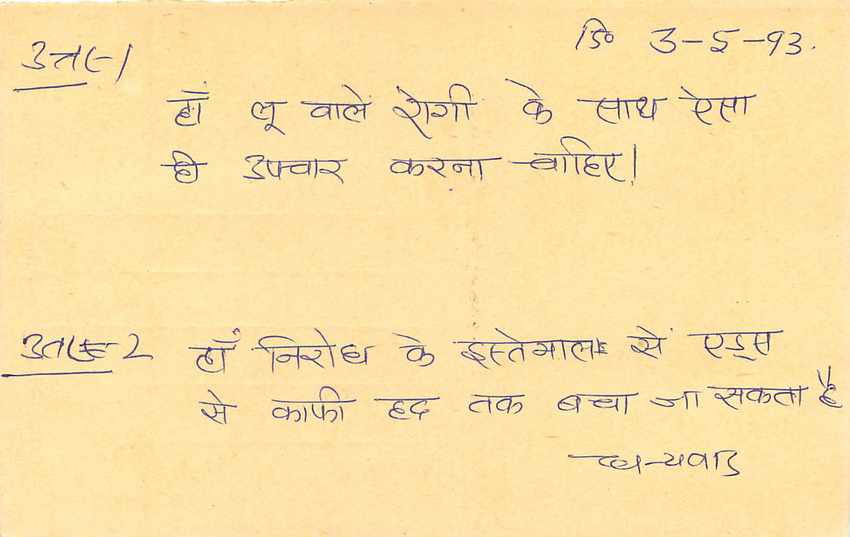 दि० 3-5-93.
उत्तर-1
हाँ लू वाले रोगी के साथ ऐसा
ही उपचार करना चाहिए।
उतर-2 हाँ निरोध के इस्तेमाल से एड्स
से काफी हद तक बचा जा सकता है
धन्यवाद